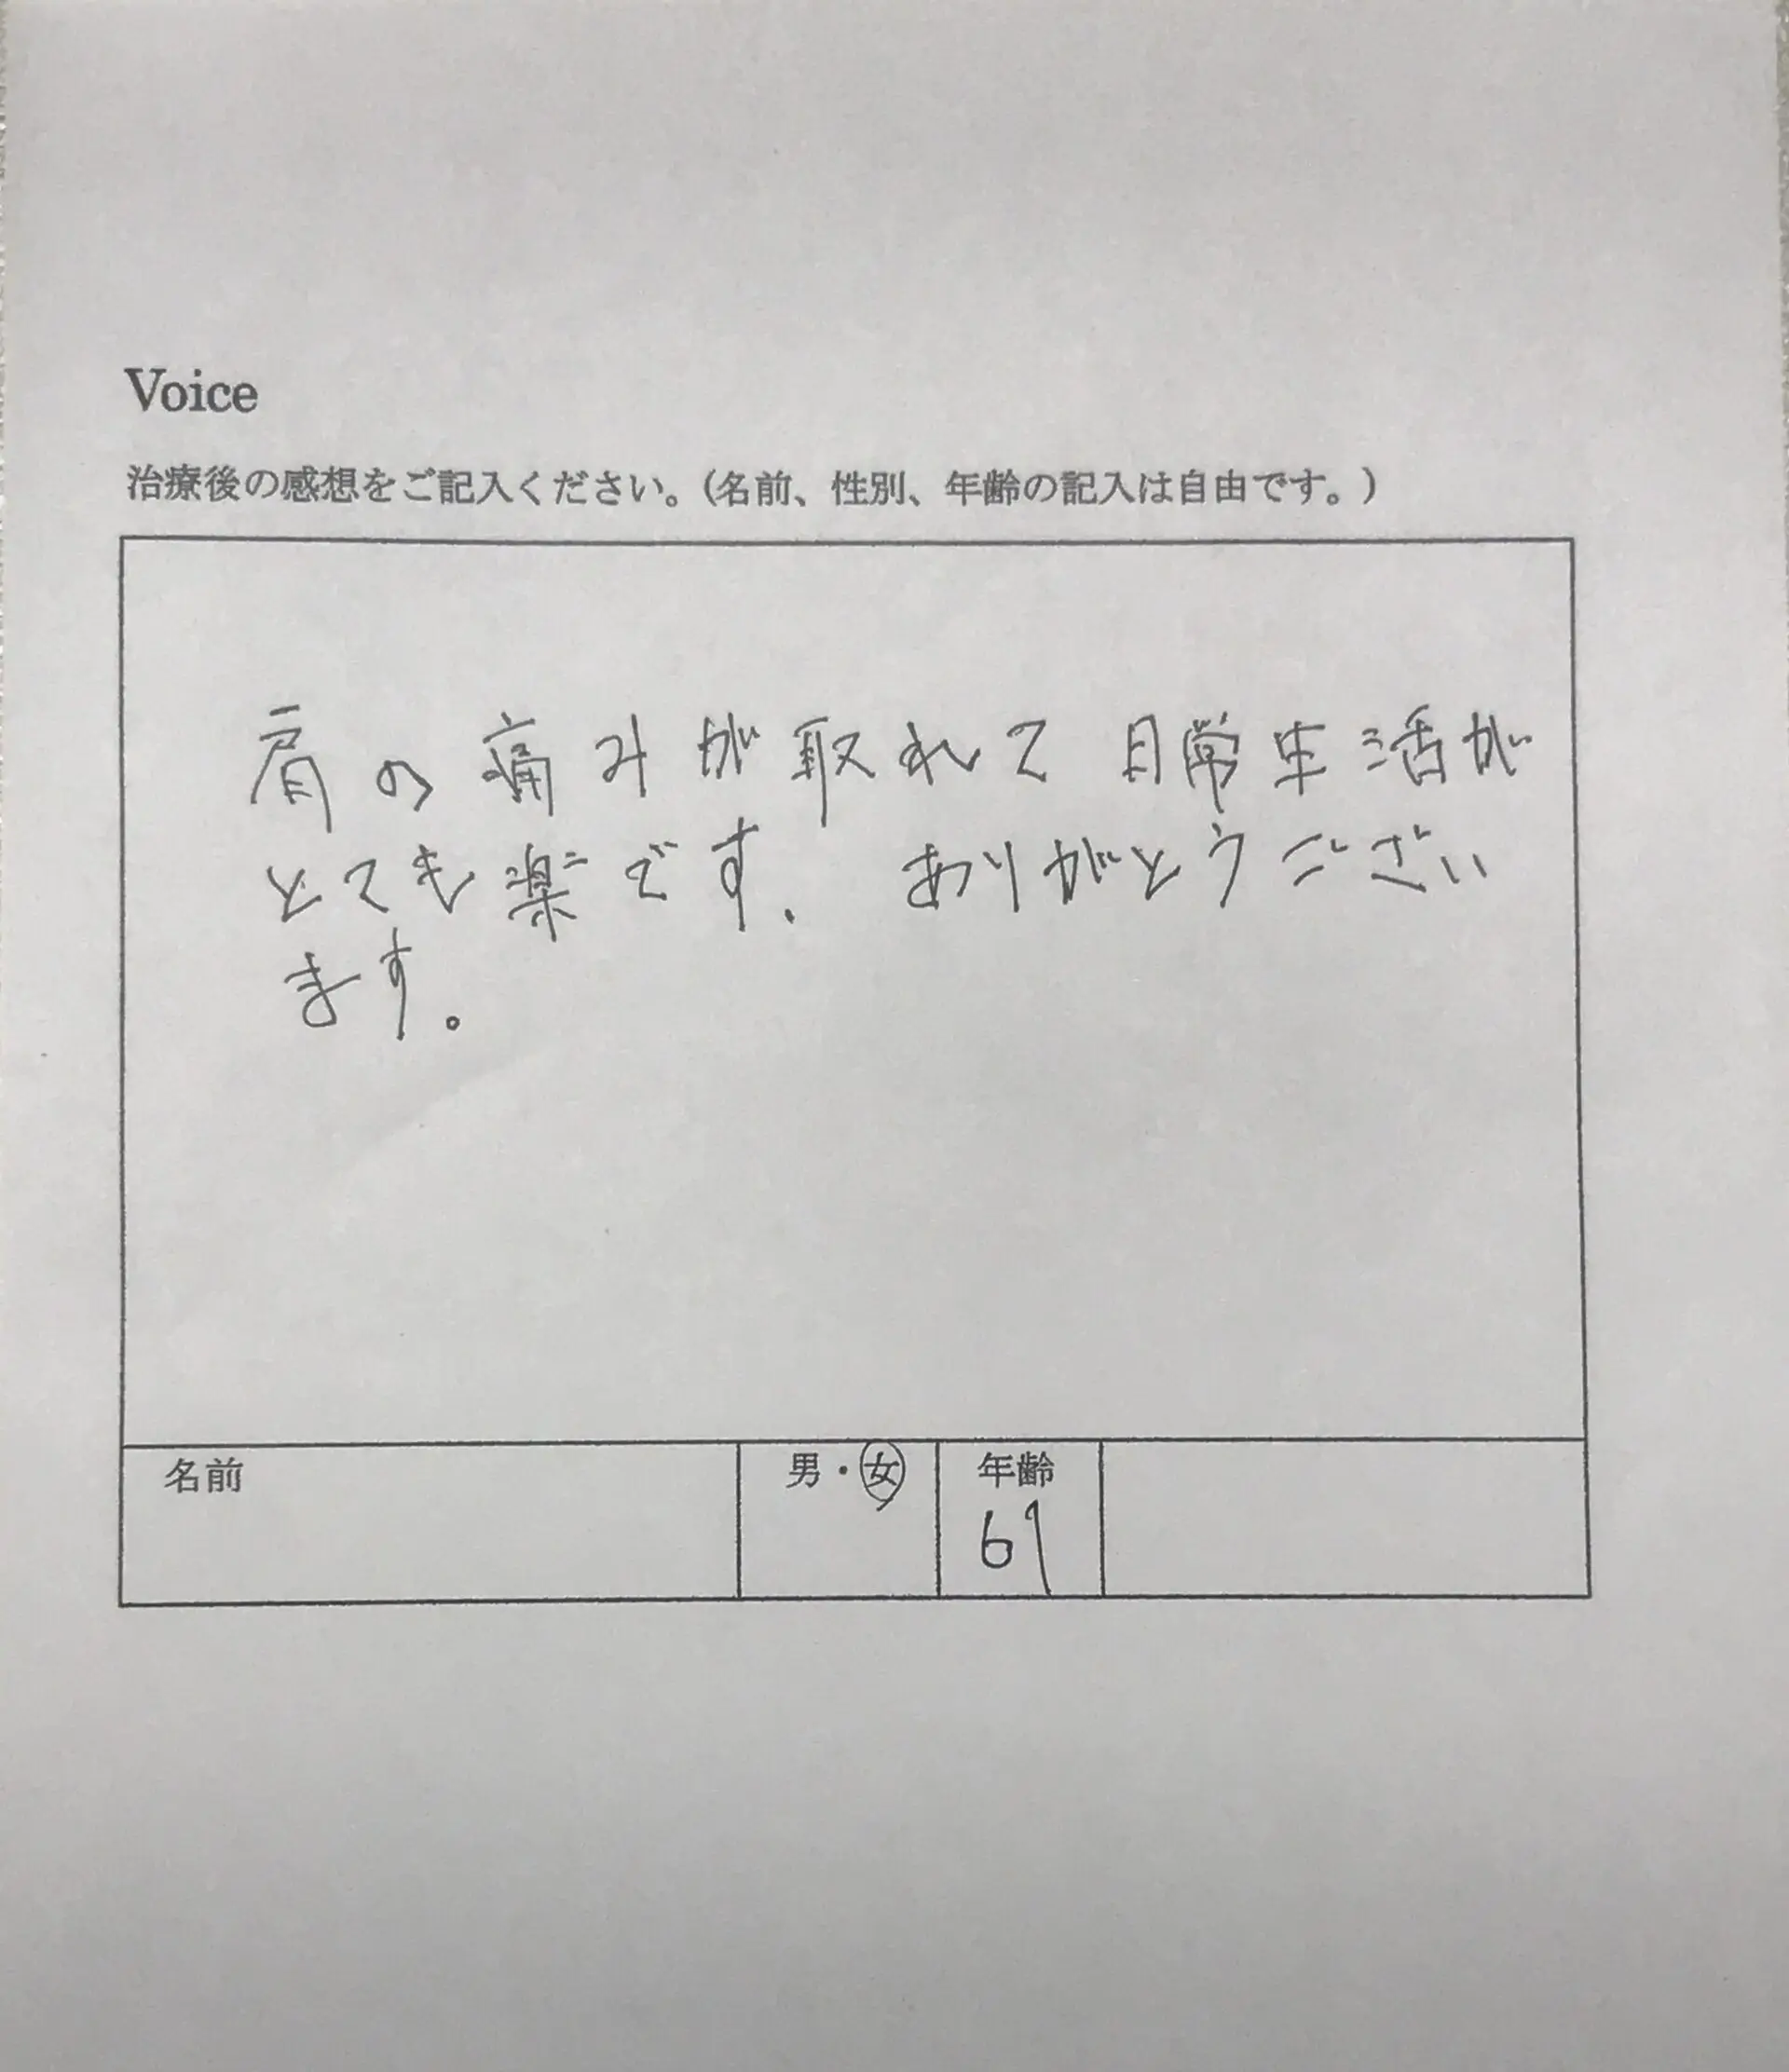 Voice
治療後の感想をご記入ください。(名前、性別、年齢の記入は自由です。)
肩の痛みが取れて日常生活が
とても楽です. ありがとうござい
ます。
名前 男・女 年齢
69